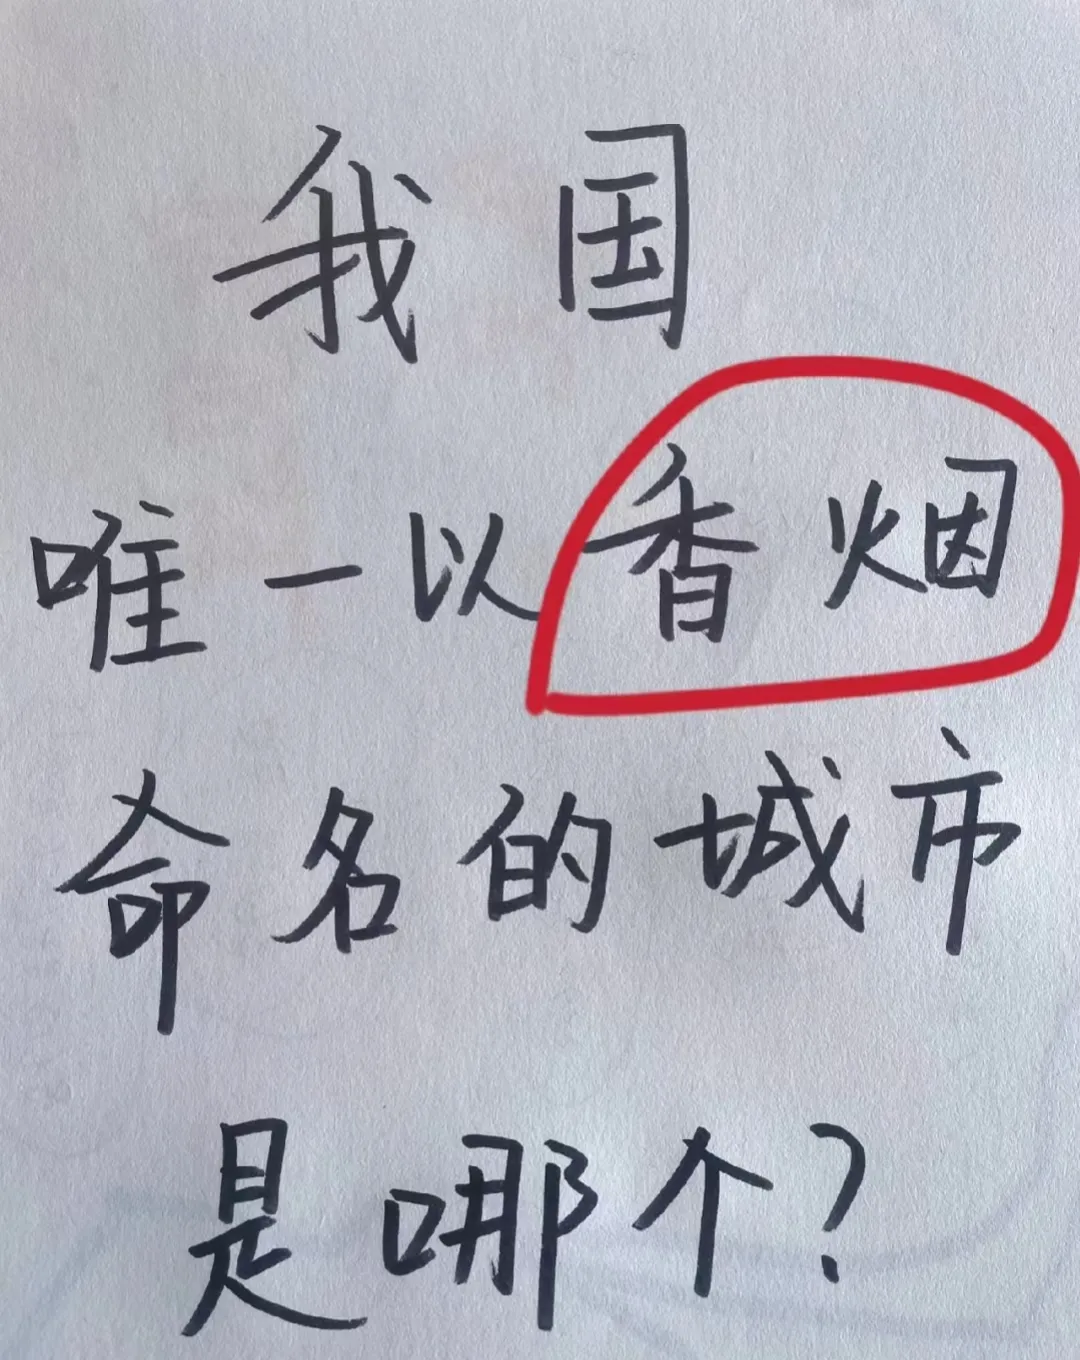 我国
唯一以香烟
命名的城市
是哪个?